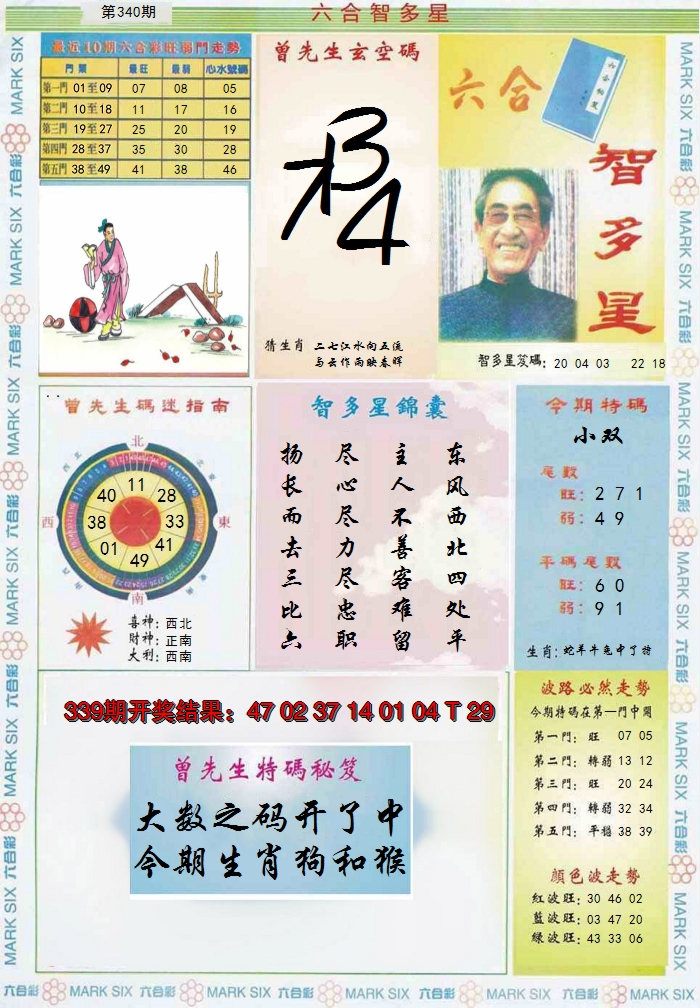 第340期
六合智多星
最近10期六合彩旺弱門走勢
門類 最旺 最弱 心水號碼
第一門 01至09 07 08 05
第二門 10至18 11 17 16
第三門 19至27 25 20 19
第四門 28至37 35 30 28
第五門 38至49 41 38 46
曾先生玄空碼
猜生肖 二七江水向五流
与云作雨映春晖
六合
智多星
智多星笈碼: 20 04 03 22 18
曾先生碼迷指南
北
西北
東北
西
東
西南
東南
南
11
28
33
41
49
01
38
40
喜神: 西北
財神: 正南
大利: 西南
智多星錦囊
东风西北四处平
主人不善客难留
尽心尽力尽忠职
扬长而去三比六
今期特碼
小双
尾數
旺: 2 7 1
弱: 4 9
平碼尾數
旺: 6 0
弱: 9 1
生肖: 蛇羊牛兔中了特
339期开奖结果: 47 02 37 14 01 04 T 29
曾先生特碼秘笈
大数之码开了中
今期生肖狗和猴
波路必然走勢
今期特碼在第一門中開
第一門: 旺 07 05
第二門: 轉弱 13 12
第三門: 旺 20 24
第四門: 轉弱 32 34
第五門: 平穩 38 39
顏色波走勢
紅波旺: 30 46 02
藍波旺: 03 47 20
绿波旺: 43 33 06
MARK SIX 六合彩